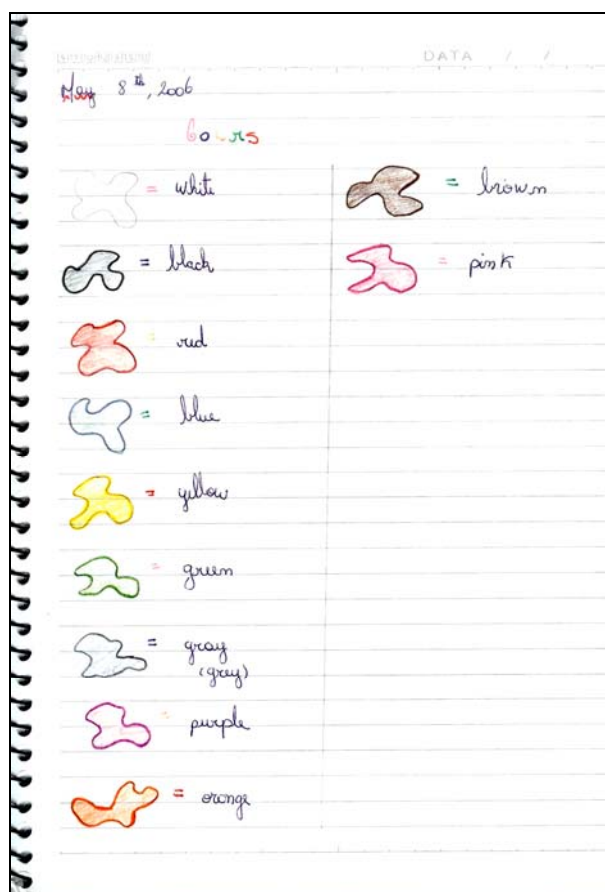 DATA / /
May 8th, 2006
= white
= black
= red
= blue
= yellow
= green
= gray
(grey)
= purple
= orange
= brown
= pink